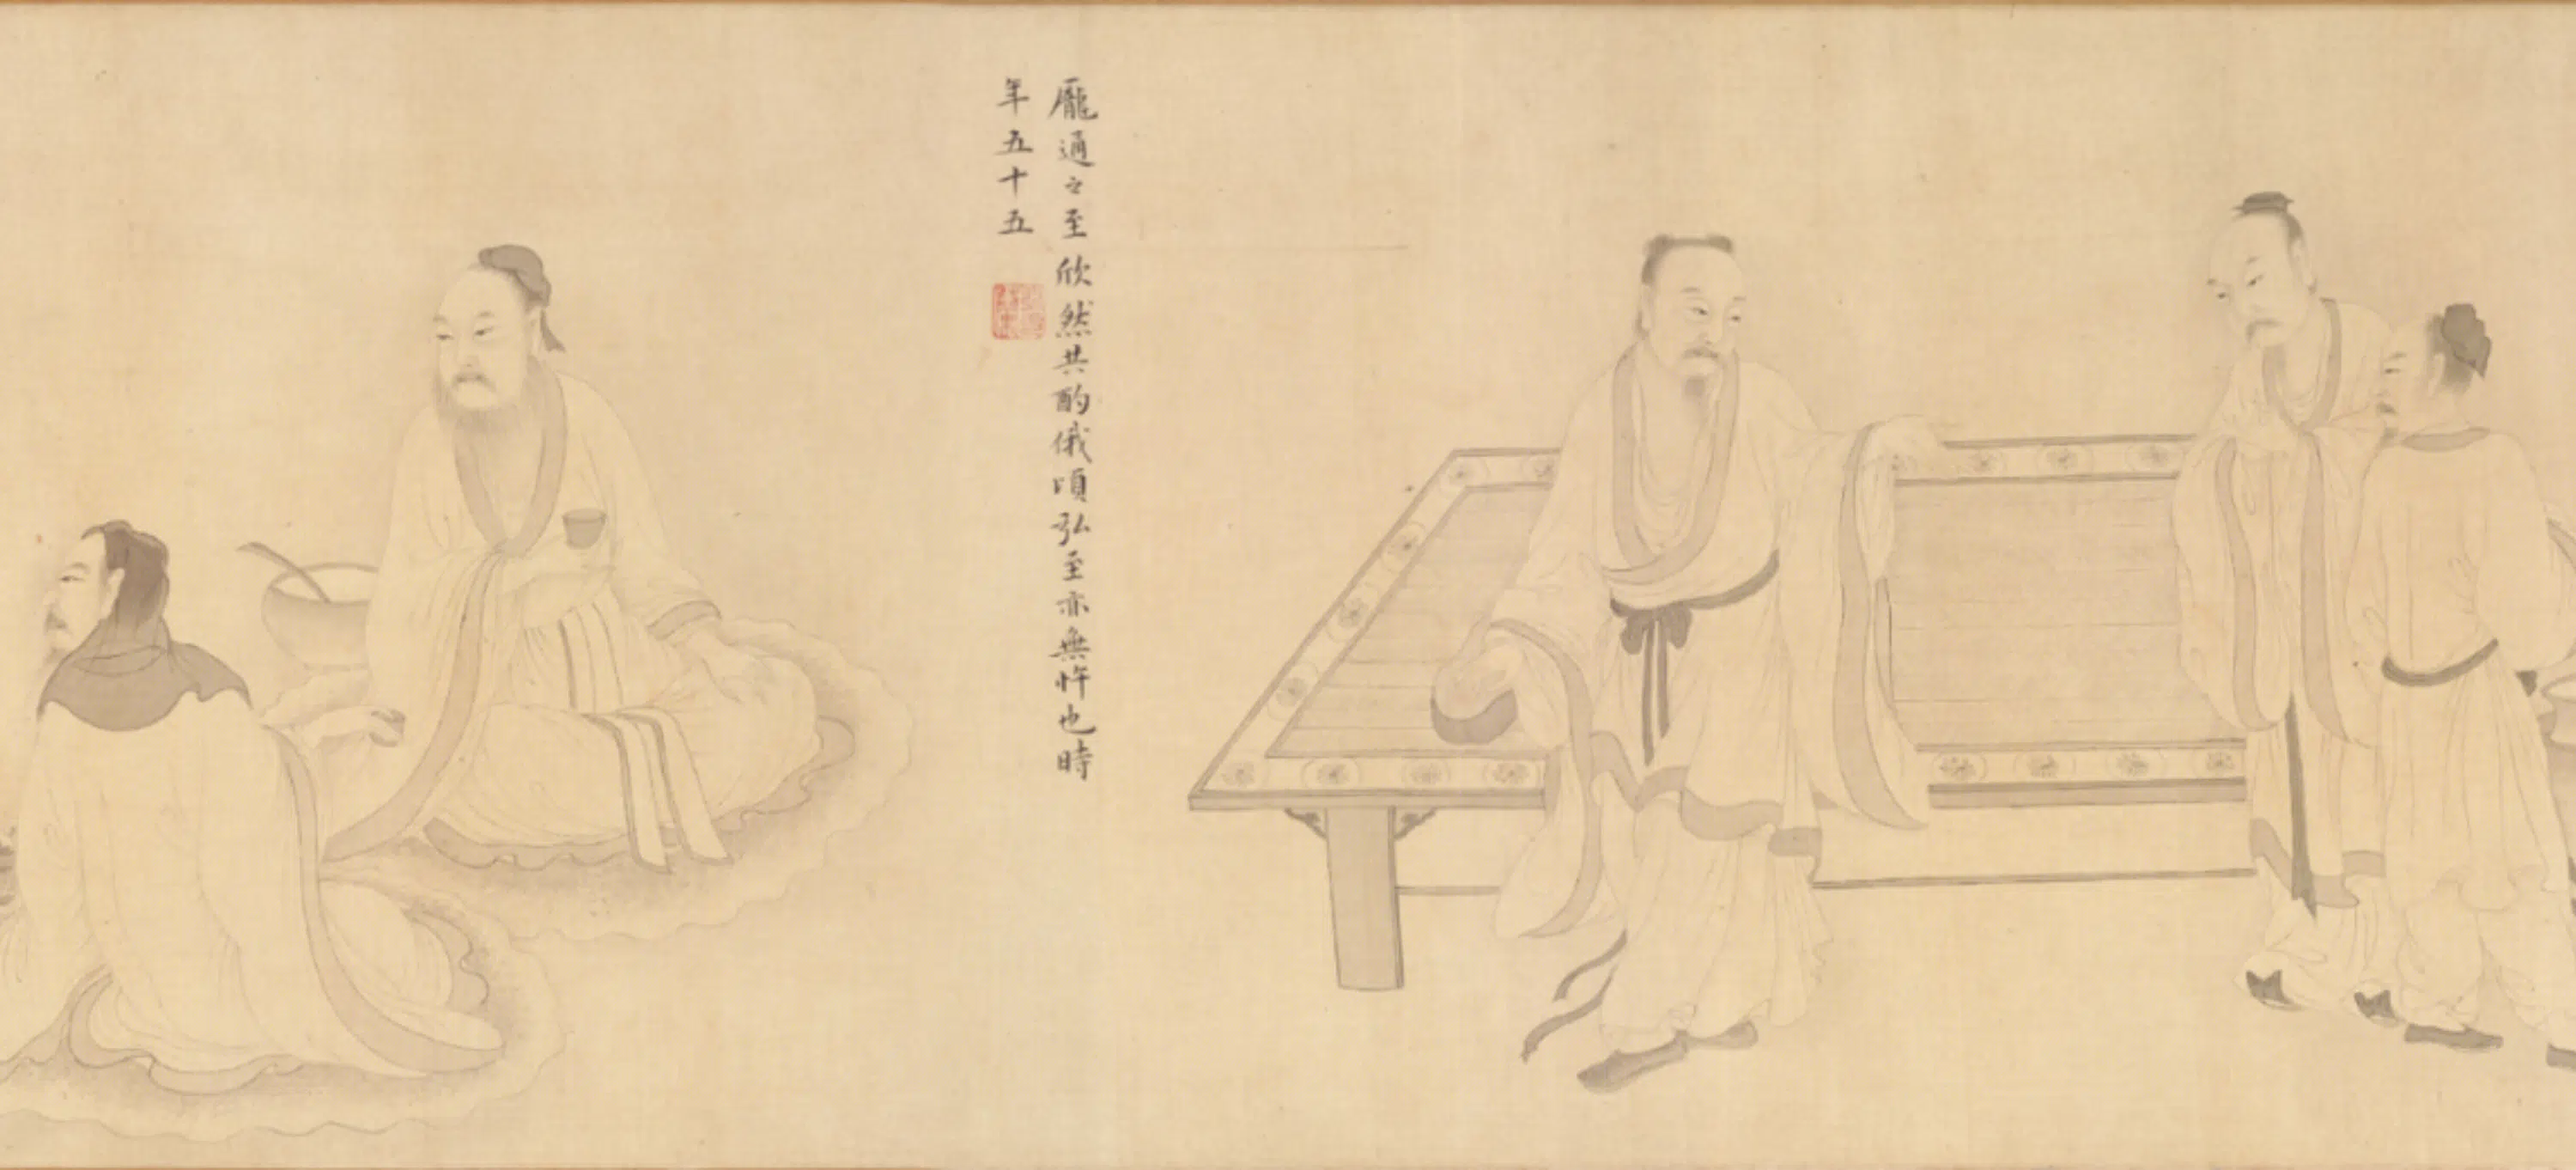 龐通之至欣然共酌俄頃弘至亦無忤也時
年五十五